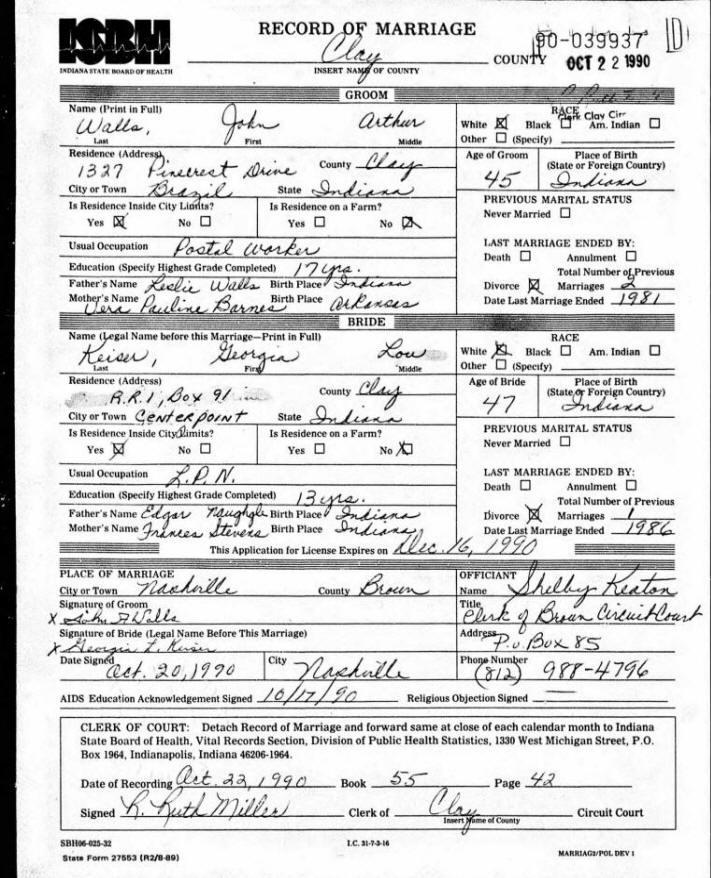 ISBH
INDIANA STATE BOARD OF HEALTH
RECORD OF MARRIAGE
Clay COUNTY
INSERT NAME OF COUNTY
90-039937
OCT 22 1990
D
GROOM
Clerk Clay Cir
Name (Print in Full)
Walls, John Arthur
Last First Middle
RACE
White ☒ Black ☐ Am. Indian ☐
Other ☐ (Specify)
Residence (Address)
1327 Pinecrest Drive County Clay
City or Town Brazil State Indiana
Age of Groom
45
Place of Birth
(State or Foreign Country)
Indiana
Is Residence Inside City Limits?
Yes ☒ No ☐
Is Residence on a Farm?
Yes ☐ No ☒
PREVIOUS MARITAL STATUS
Never Married ☐
Usual Occupation Postal Worker
Education (Specify Highest Grade Completed) 17 yrs.
Father's Name Leslie Walls Birth Place Indiana
Mother's Name Vera Pauline Barnes Birth Place Arkansas
LAST MARRIAGE ENDED BY:
Death ☐ Annulment ☐
Total Number of Previous
Divorce ☒ Marriages 2
Date Last Marriage Ended 1981
BRIDE
Name (Legal Name before this Marriage—Print in Full)
Keiser, Georgia Lou
Last First Middle
RACE
White ☒ Black ☐ Am. Indian ☐
Other ☐ (Specify)
Residence (Address)
R.R.1, Box 91 County Clay
City or Town Centerpoint State Indiana
Age of Bride
47
Place of Birth
(State or Foreign Country)
Indiana
Is Residence Inside City Limits?
Yes ☒ No ☐
Is Residence on a Farm?
Yes ☐ No ☒
PREVIOUS MARITAL STATUS
Never Married ☐
Usual Occupation L.P.N.
Education (Specify Highest Grade Completed) 13 yrs.
Father's Name Edgar Birth Place Indiana
Mother's Name Frances Stevens Birth Place Indiana
LAST MARRIAGE ENDED BY:
Death ☐ Annulment ☐
Total Number of Previous
Divorce ☒ Marriages 1
Date Last Marriage Ended 1986
This Application for License Expires on Dec. 16, 1990
PLACE OF MARRIAGE
City or Town Nashville County Brown
OFFICIANT
Name Shelby Keaton
Signature of Groom
X John A Walls
Title
Clerk of Brown Circuit Court
Signature of Bride (Legal Name Before This Marriage)
X Georgia L. Keiser
Address
P.O. Box 85
Date Signed Oct. 20, 1990
City Nashville
Phone Number
(812) 988-4796
AIDS Education Acknowledgement Signed 10/17/90 Religious Objection Signed
CLERK OF COURT: Detach Record of Marriage and forward same at close of each calendar month to Indiana
State Board of Health, Vital Records Section, Division of Public Health Statistics, 1330 West Michigan Street, P.O.
Box 1964, Indianapolis, Indiana 46206-1964.
Date of Recording Oct. 22, 1990 Book 55 Page 42
Signed R. Ruth Miller Clerk of Clay Circuit Court
Insert Name of County
SBH06-025-32
I.C. 31-7-3-16
State Form 27553 (R2/8-89)
MARRIAG2/POL DEV 1